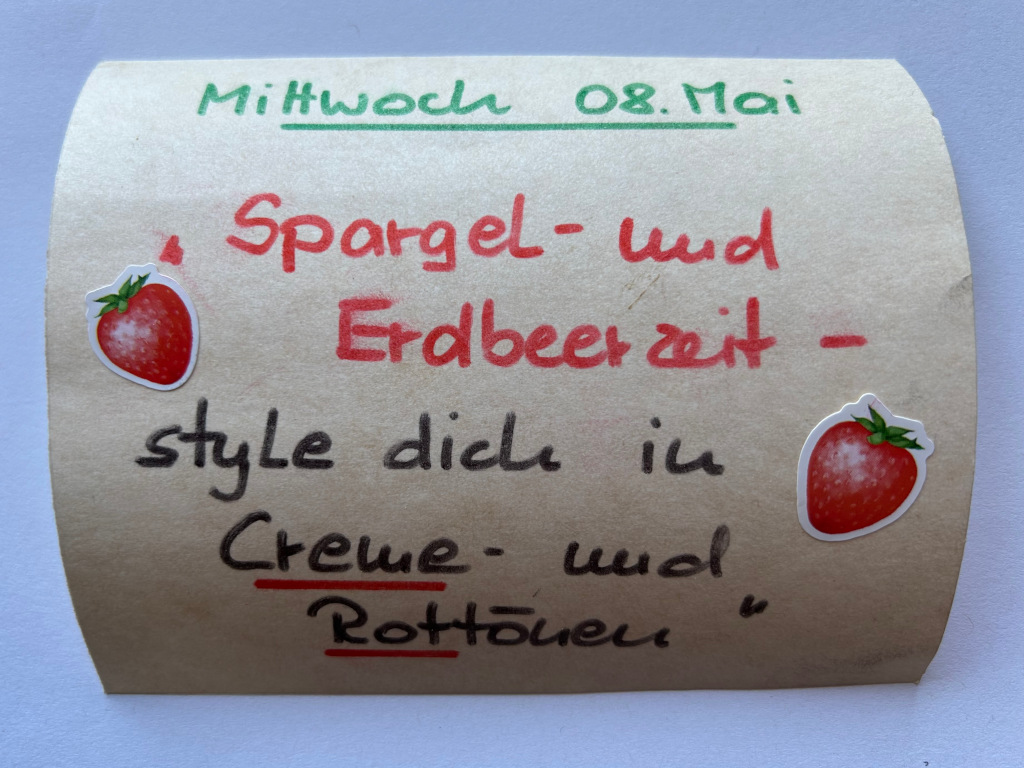 Mittwoch 08. Mai
„Spargel- und
Erdbeerzeit -
style dich in
Creme- und
Rottönen"